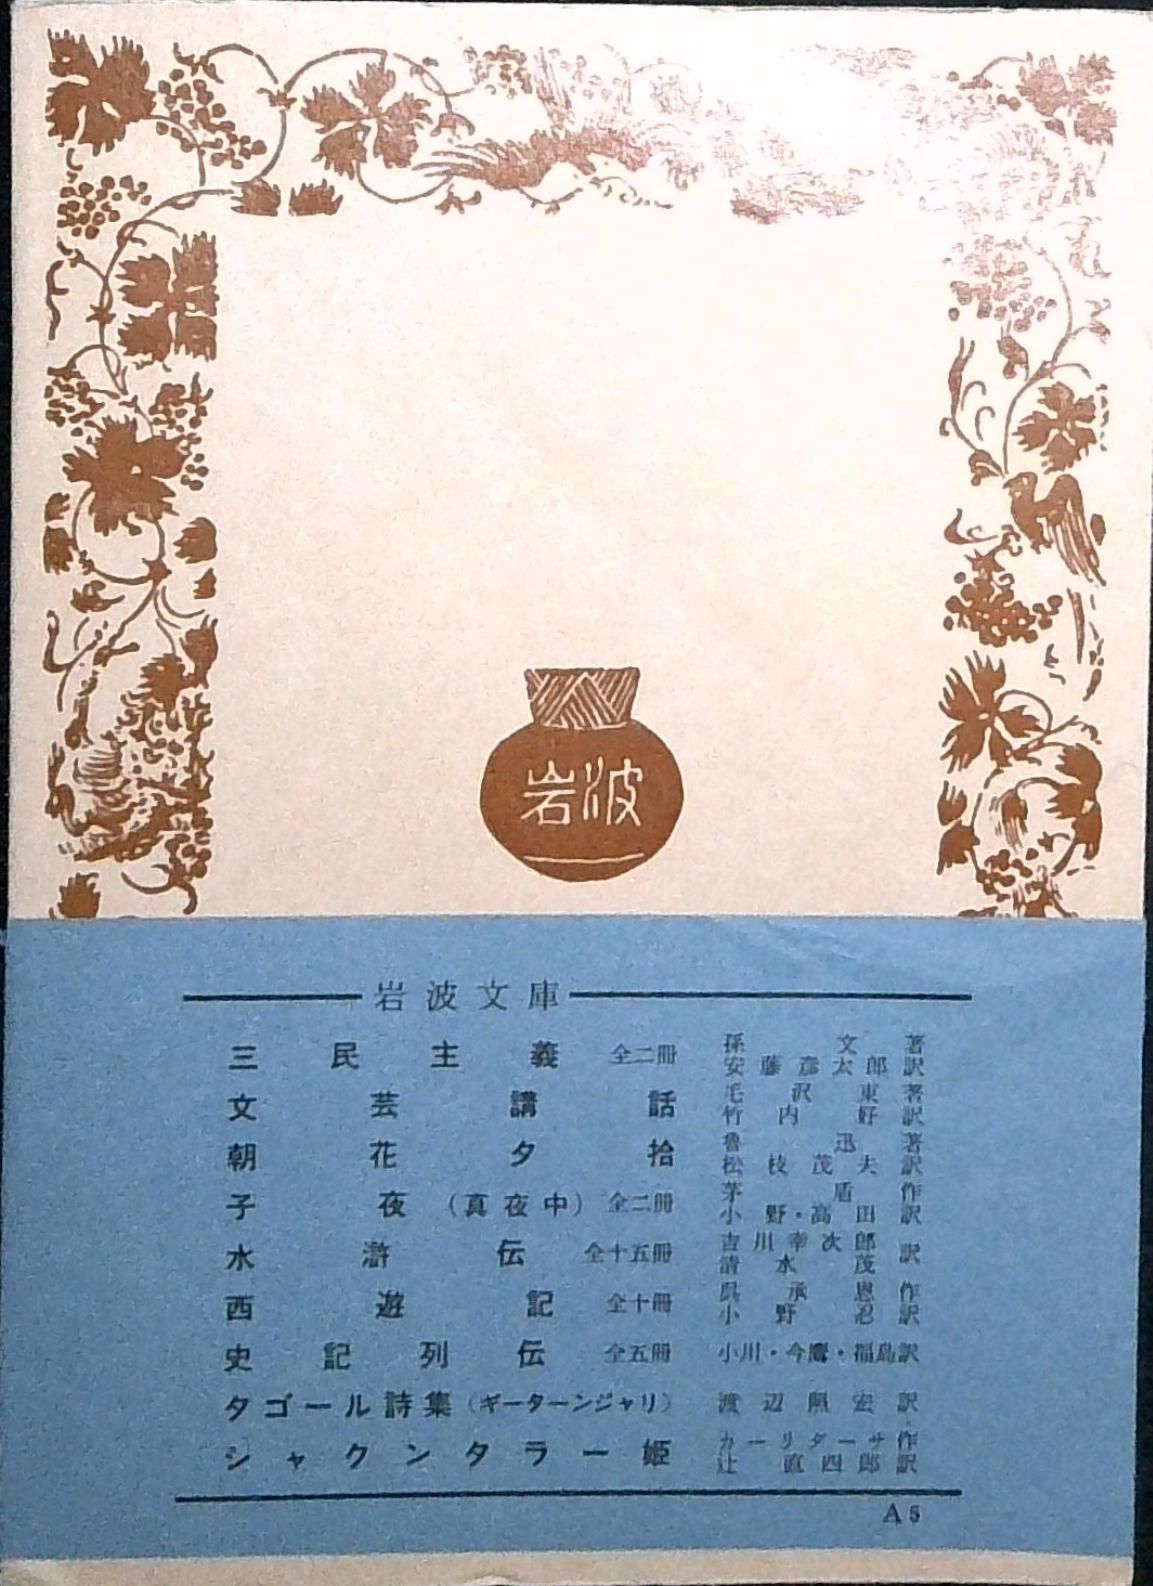 岩波
岩波文庫
三民主義 全二冊 孫文著 安藤彦太郎訳
文芸講話 毛沢東著 竹内好訳
朝花夕拾 魯迅著 松枝茂夫訳
子夜(真夜中) 全二冊 茅盾作 小野・高田訳
水滸伝 全十五冊 吉川幸次郎 清水茂 訳
西遊記 全十冊 呉承恩作 小野忍訳
史記列伝 全五冊 小川・今鷹・福島訳
タゴール詩集(ギーターンジャリ) 渡辺照宏訳
シャクンタラー姫 カーリダーサ作 辻直四郎訳
A5